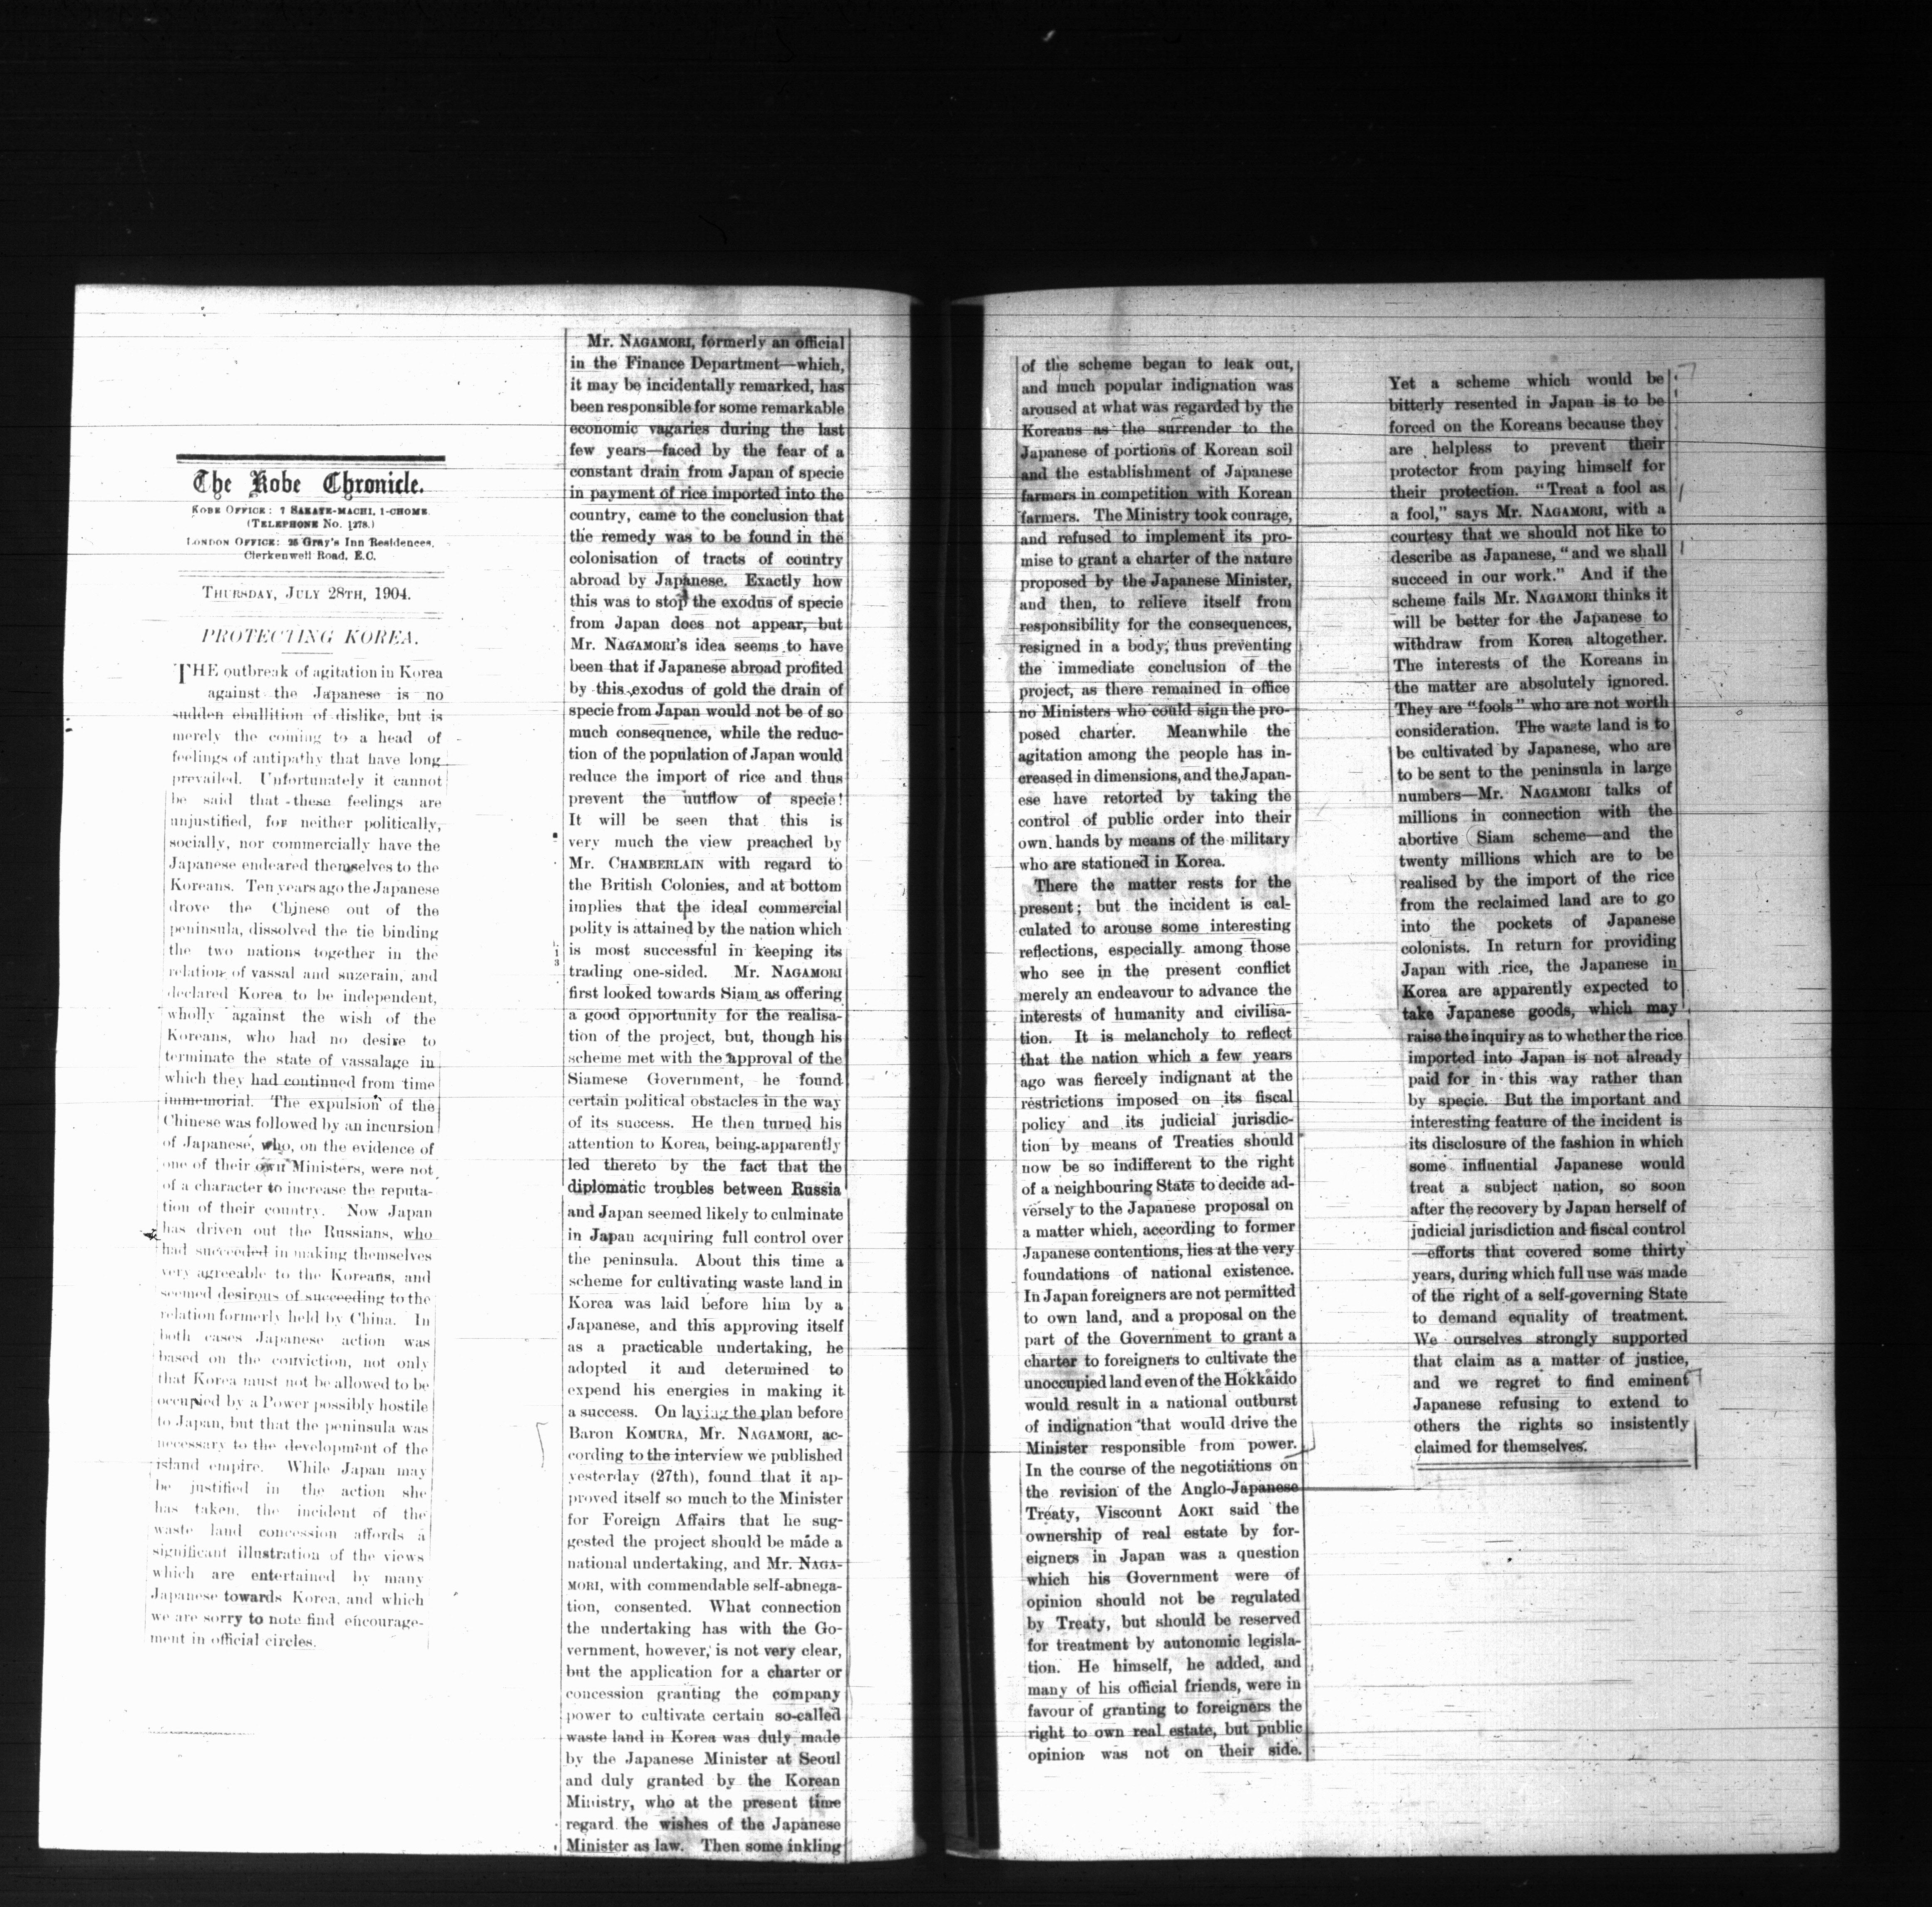 The Kobe Chronicle.
KOBE OFFICE: 7 SAKATE-MACHI, 1-CHOME.
(TELEPHONE NO. 1278.)
LONDON OFFICE: 25 Gray's Inn Residences,
Clerkenwell Road, E.C.
THURSDAY, JULY 28TH, 1904.
PROTECTING KOREA.
THE outbreak of agitation in Korea
against the Japanese is no
sudden ebullition of dislike, but is
merely the coming to a head of
feelings of antipathy that have long
prevailed. Unfortunately it cannot
be said that these feelings are
unjustified, for neither politically,
socially, nor commercially have the
Japanese endeared themselves to the
Koreans. Ten years ago the Japanese
drove the Chinese out of the
peninsula, dissolved the tie binding
the two nations together in the
relation of vassal and suzerain, and
declared Korea to be independent,
wholly against the wish of the
Koreans, who had no desire to
terminate the state of vassalage in
which they had continued from time
immemorial. The expulsion of the
Chinese was followed by an incursion
of Japanese, who, on the evidence of
one of their own Ministers, were not
of a character to increase the reputa-
tion of their country. Now Japan
has driven out the Russians, who
had succeeded in making themselves
very agreeable to the Koreans, and
seemed desirous of succeeding to the
relation formerly held by China. In
both cases Japanese action was
based on the conviction, not only
that Korea must not be allowed to be
occupied by a Power possibly hostile
to Japan, but that the peninsula was
necessary to the development of the
island empire. While Japan may
be justified in the action she
has taken, the incident of the
waste land concession affords a
significant illustration of the views
which are entertained by many
Japanese towards Korea, and which
we are sorry to note find encourage-
ment in official circles.
Mr. NAGAMORI, formerly an official
in the Finance Department—which,
it may be incidentally remarked, has
been responsible for some remarkable
economic vagaries during the last
few years—faced by the fear of a
constant drain from Japan of specie
in payment of rice imported into the
country, came to the conclusion that
the remedy was to be found in the
colonisation of tracts of country
abroad by Japanese. Exactly how
this was to stop the exodus of specie
from Japan does not appear, but
Mr. NAGAMORI'S idea seems to have
been that if Japanese abroad profited
by this exodus of gold the drain of
specie from Japan would not be of so
much consequence, while the reduc-
tion of the population of Japan would
reduce the import of rice and thus
prevent the outflow of specie!
It will be seen that this is
very much the view preached by
Mr. CHAMBERLAIN with regard to
the British Colonies, and at bottom
implies that the ideal commercial
polity is attained by the nation which
is most successful in keeping its
trading one-sided. Mr. NAGAMORI
first looked towards Siam as offering
a good opportunity for the realisa-
tion of the project, but, though his
scheme met with the approval of the
Siamese Government, he found
certain political obstacles in the way
of its success. He then turned his
attention to Korea, being apparently
led thereto by the fact that the
diplomatic troubles between Russia
and Japan seemed likely to culminate
in Japan acquiring full control over
the peninsula. About this time a
scheme for cultivating waste land in
Korea was laid before him by a
Japanese, and this approving itself
as a practicable undertaking, he
adopted it and determined to
expend his energies in making it
a success. On laying the plan before
Baron KOMURA, Mr. NAGAMORI, ac-
cording to the interview we published
yesterday (27th), found that it ap-
proved itself so much to the Minister
for Foreign Affairs that he sug-
gested the project should be made a
national undertaking, and Mr. NAGA-
MORI, with commendable self-abnega-
tion, consented. What connection
the undertaking has with the Go-
vernment, however, is not very clear,
but the application for a charter or
concession granting the company
power to cultivate certain so-called
waste land in Korea was duly made
by the Japanese Minister at Seoul
and duly granted by the Korean
Ministry, who at the present time
regard the wishes of the Japanese
Minister as law. Then some inkling
of the scheme began to leak out,
and much popular indignation was
aroused at what was regarded by the
Koreans as the surrender to the
Japanese of portions of Korean soil
and the establishment of Japanese
farmers in competition with Korean
farmers. The Ministry took courage,
and refused to implement its pro-
mise to grant a charter of the nature
proposed by the Japanese Minister,
and then, to relieve itself from
responsibility for the consequences,
resigned in a body, thus preventing
the immediate conclusion of the
project, as there remained in office
no Ministers who could sign the pro-
posed charter. Meanwhile the
agitation among the people has in-
creased in dimensions, and the Japan-
ese have retorted by taking the
control of public order into their
own hands by means of the military
who are stationed in Korea.
There the matter rests for the
present; but the incident is cal-
culated to arouse some interesting
reflections, especially among those
who see in the present conflict
merely an endeavour to advance the
interests of humanity and civilisa-
tion. It is melancholy to reflect
that the nation which a few years
ago was fiercely indignant at the
restrictions imposed on its fiscal
policy and its judicial jurisdic-
tion by means of Treaties should
now be so indifferent to the right
of a neighbouring State to decide ad-
versely to the Japanese proposal on
a matter which, according to former
Japanese contentions, lies at the very
foundations of national existence.
In Japan foreigners are not permitted
to own land, and a proposal on the
part of the Government to grant a
charter to foreigners to cultivate the
unoccupied land even of the Hokkaido
would result in a national outburst
of indignation that would drive the
Minister responsible from power.
In the course of the negotiations on
the revision of the Anglo-Japanese
Treaty, Viscount AOKI said the
ownership of real estate by for-
eigners in Japan was a question
which his Government were of
opinion should not be regulated
by Treaty, but should be reserved
for treatment by autonomic legisla-
tion. He himself, he added, and
many of his official friends, were in
favour of granting to foreigners the
right to own real estate, but public
opinion was not on their side.
Yet a scheme which would be
bitterly resented in Japan is to be
forced on the Koreans because they
are helpless to prevent their
protector from paying himself for
their protection. "Treat a fool as
a fool," says Mr. NAGAMORI, with a
courtesy that we should not like to
describe as Japanese, "and we shall
succeed in our work." And if the
scheme fails Mr. NAGAMORI thinks it
will be better for the Japanese to
withdraw from Korea altogether.
The interests of the Koreans in
the matter are absolutely ignored.
They are "fools" who are not worth
consideration. The waste land is to
be cultivated by Japanese, who are
to be sent to the peninsula in large
numbers—Mr. NAGAMORI talks of
millions in connection with the
abortive Siam scheme—and the
twenty millions which are to be
realised by the import of the rice
from the reclaimed land are to go
into the pockets of Japanese
colonists. In return for providing
Japan with rice, the Japanese in
Korea are apparently expected to
take Japanese goods, which may
raise the inquiry as to whether the rice
imported into Japan is not already
paid for in this way rather than
by specie. But the important and
interesting feature of the incident is
its disclosure of the fashion in which
some influential Japanese would
treat a subject nation, so soon
after the recovery by Japan herself of
judicial jurisdiction and fiscal control
—efforts that covered some thirty
years, during which full use was made
of the right of a self-governing State
to demand equality of treatment.
We ourselves strongly supported
that claim as a matter of justice,
and we regret to find eminent
Japanese refusing to extend to
others the rights so insistently
claimed for themselves.